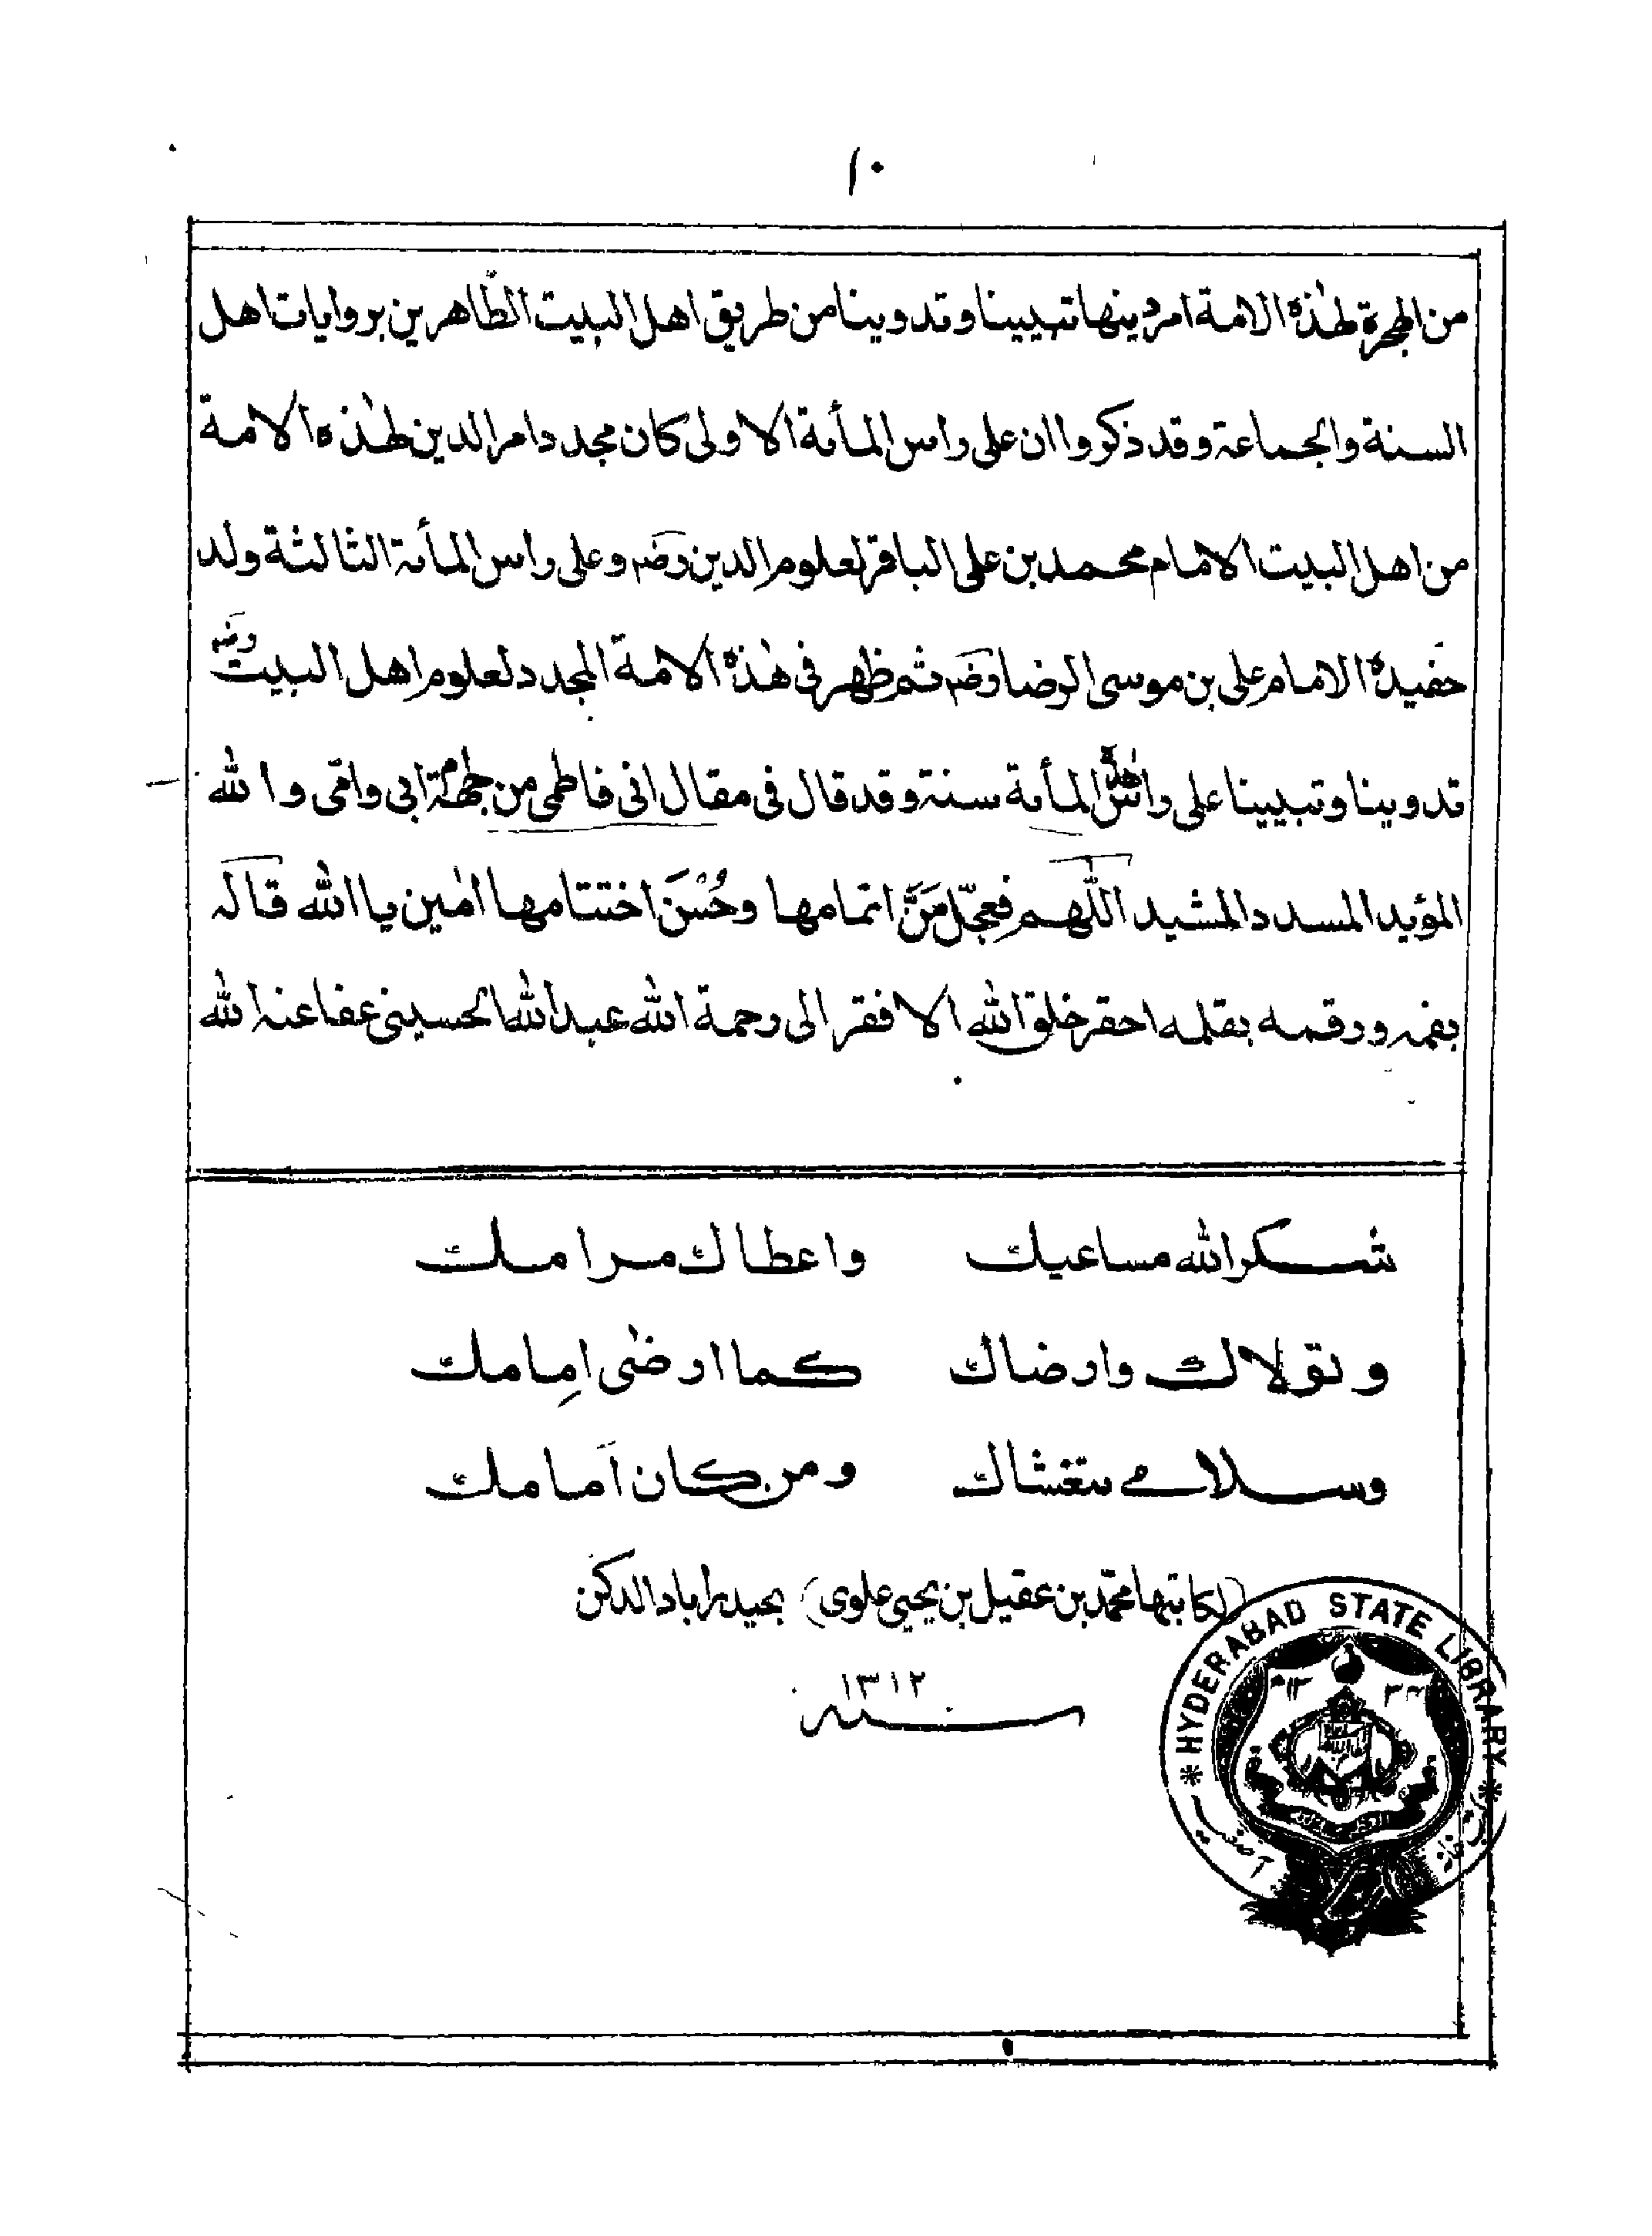 ١٠
من الهجرة لهٰذه الامة امر دينها تبيينا وتدوينا من طريق اهل البيت الطّاهرين بروايات اهل
السنة والجماعة وقد ذكروا ان على راس المأىة الاولى كان مجدد امر الدين لهٰذه الامة
من اهل البيت الامام محمد بن على الباقر لعلوم الدين رضہ وعلى راس المأىة الثالثة ولد
حفيده الامام على بن موسى الرضا رضہ ثم ظهر فى هٰذه الامة المجدد لعلوم اهل البيت رضہ
تدوينا وتبيينا على راس المأىة سنة وقد قال فى مقال انى فاطمى من جهة ابى وامّى والله
المؤيد المسدد المشيد اللّٰهم فعجّل مَنَّ اتمامها وحُسْنَ اختتامها اٰمين يا الله قاله
بفمه ورقمه بقلمه احقر خلق الله الافقر الى رحمة الله عبد الله الحسينى عفا عنه الله
شكر الله مساعيك واعطاك مرامك
وتولاك وارضاك كما ارضى اِمامك
وسلامي يتغشاك ومن كان اَمامك
(لكاتبها محمّد بن عقيل بن يحيى علوى) بحيدراباد الدكن
سنه ١٣١٢
HYDERABAD STATE LIBRARY
آصفيه